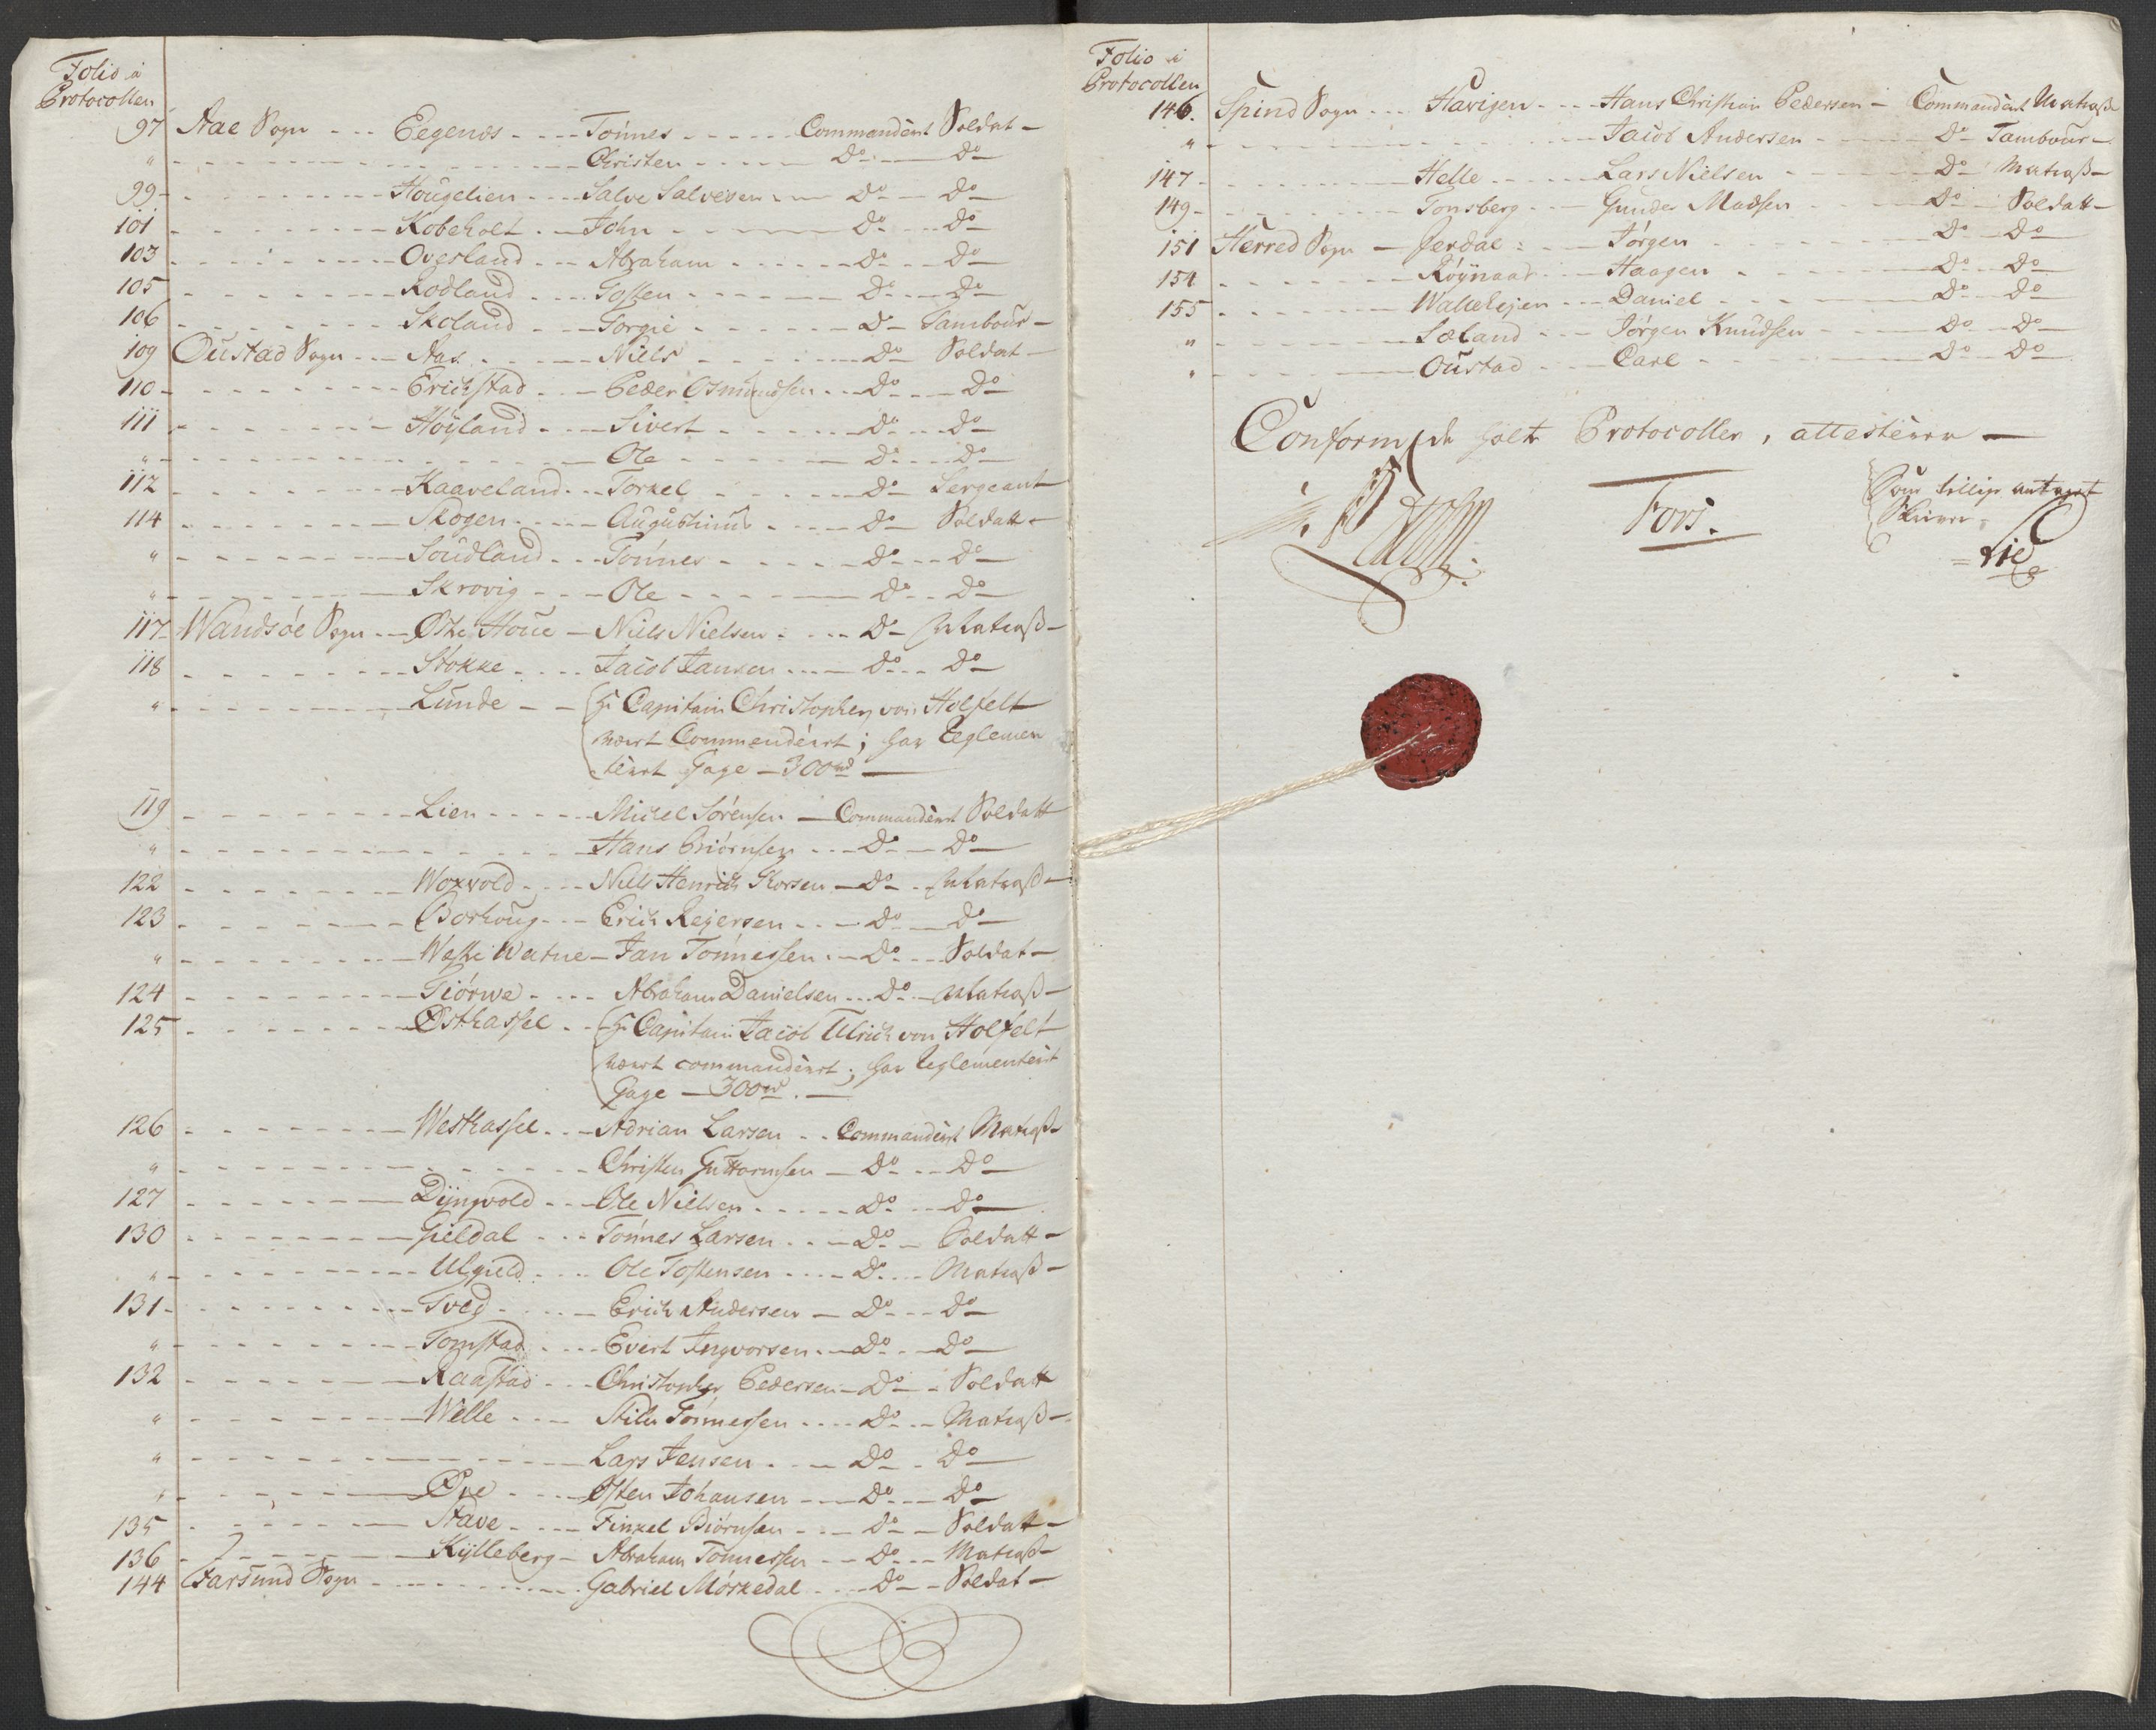 Folio i
Protocollen
97 Aae Sogn Eegenæs Tönnes Commandeert Soldat
" Christen Do Do
99 Hougelien Salve Salvesen Do Do
101 Kobeholt John Do Do
103 Ovesland Abraham Do Do
105 Rodland Gosten Do Do
106 Skoland Torgie Do Tambour
109 Oustad Sogn Aas Niels Do Soldat
110 Erichstad Peder Osmundsen Do Do
111 Höyland Sivert Do Do
" Ole Do Do
112 Kaaveland Torkel Do Sergeant
114 Skogen Augustinus Do Soldatt
" Soudland Tönnes Do Do
" Skrovig Ole Do Do
117 Wandsöe Sogn Øtre Houe Niels Nielsen Do Matraß
118 Stokke Jacob Jansen Do Do
" Lunde Hr Capitain Christopher von Holfelt
været Commendeert; har Reglemen
teert Gage 300 rd
119 Lien Michel Sörensen Commandeert Soldatt
" Hans Briörnsen Do Do
122 Woxvold Niels Henrich Korsen Do Matraß
123 Borhoug Erich Rejersen Do Do
" Westre Watne Jan Tönnessen Do Soldat
124 Tiörwe Abraham Danielsen Do Matraß
125 Østhassel Hr Capitain Jacob Ulrich von Holfelt
været commandeert; har Reglementeert
Gage 300 rd
126 Westhassel Adrian Larsen Commandeert Matraß
" Christen Guttormsen Do Do
127 Dyngvold Ole Nielsen Do Do
130 Gieldal Tönnes Larsen Do Soldatt
" Ulgield Ole Tostensen Do Matraß
131 Tved Erich Andersen Do Do
" Tomstad Evert Ingvorsen Do Do
132 Raastad Christopher Pedersen Do Soldatt
" Welle Stiler Tönnessen Do Matraß
" Lars Jensen Do Do
" Øre Osten Johansen Do Do
135 Stave Finkel Biörnsen Do Soldatt
136 Kylleberg Abraham Tönnessen Do Matraß
144 Farsund Sogn Gabriel Mörkedal Do Soldat
Folio i
Protocollen
146. Spind Sogn Havigen Hans Christian Pedersen Commandeert Matraß
" Jacob Andersen Do Tambour
147 Helle Lars Nielsen Do Matraß
149 Tonsberg Gunder Madsen Do Soldatt
151 Herred Sogn Jerdal Jörgen Do Do
154 Röynaas Haagen Do Do
155 Walleløjen Daniel Do Do
" Sæland Jörgen Knudsen Do Do
" Oustad Carl Do Do
Conform de holte Protocoller, attesterer
Fors.
Som tillige antaget
Skriver